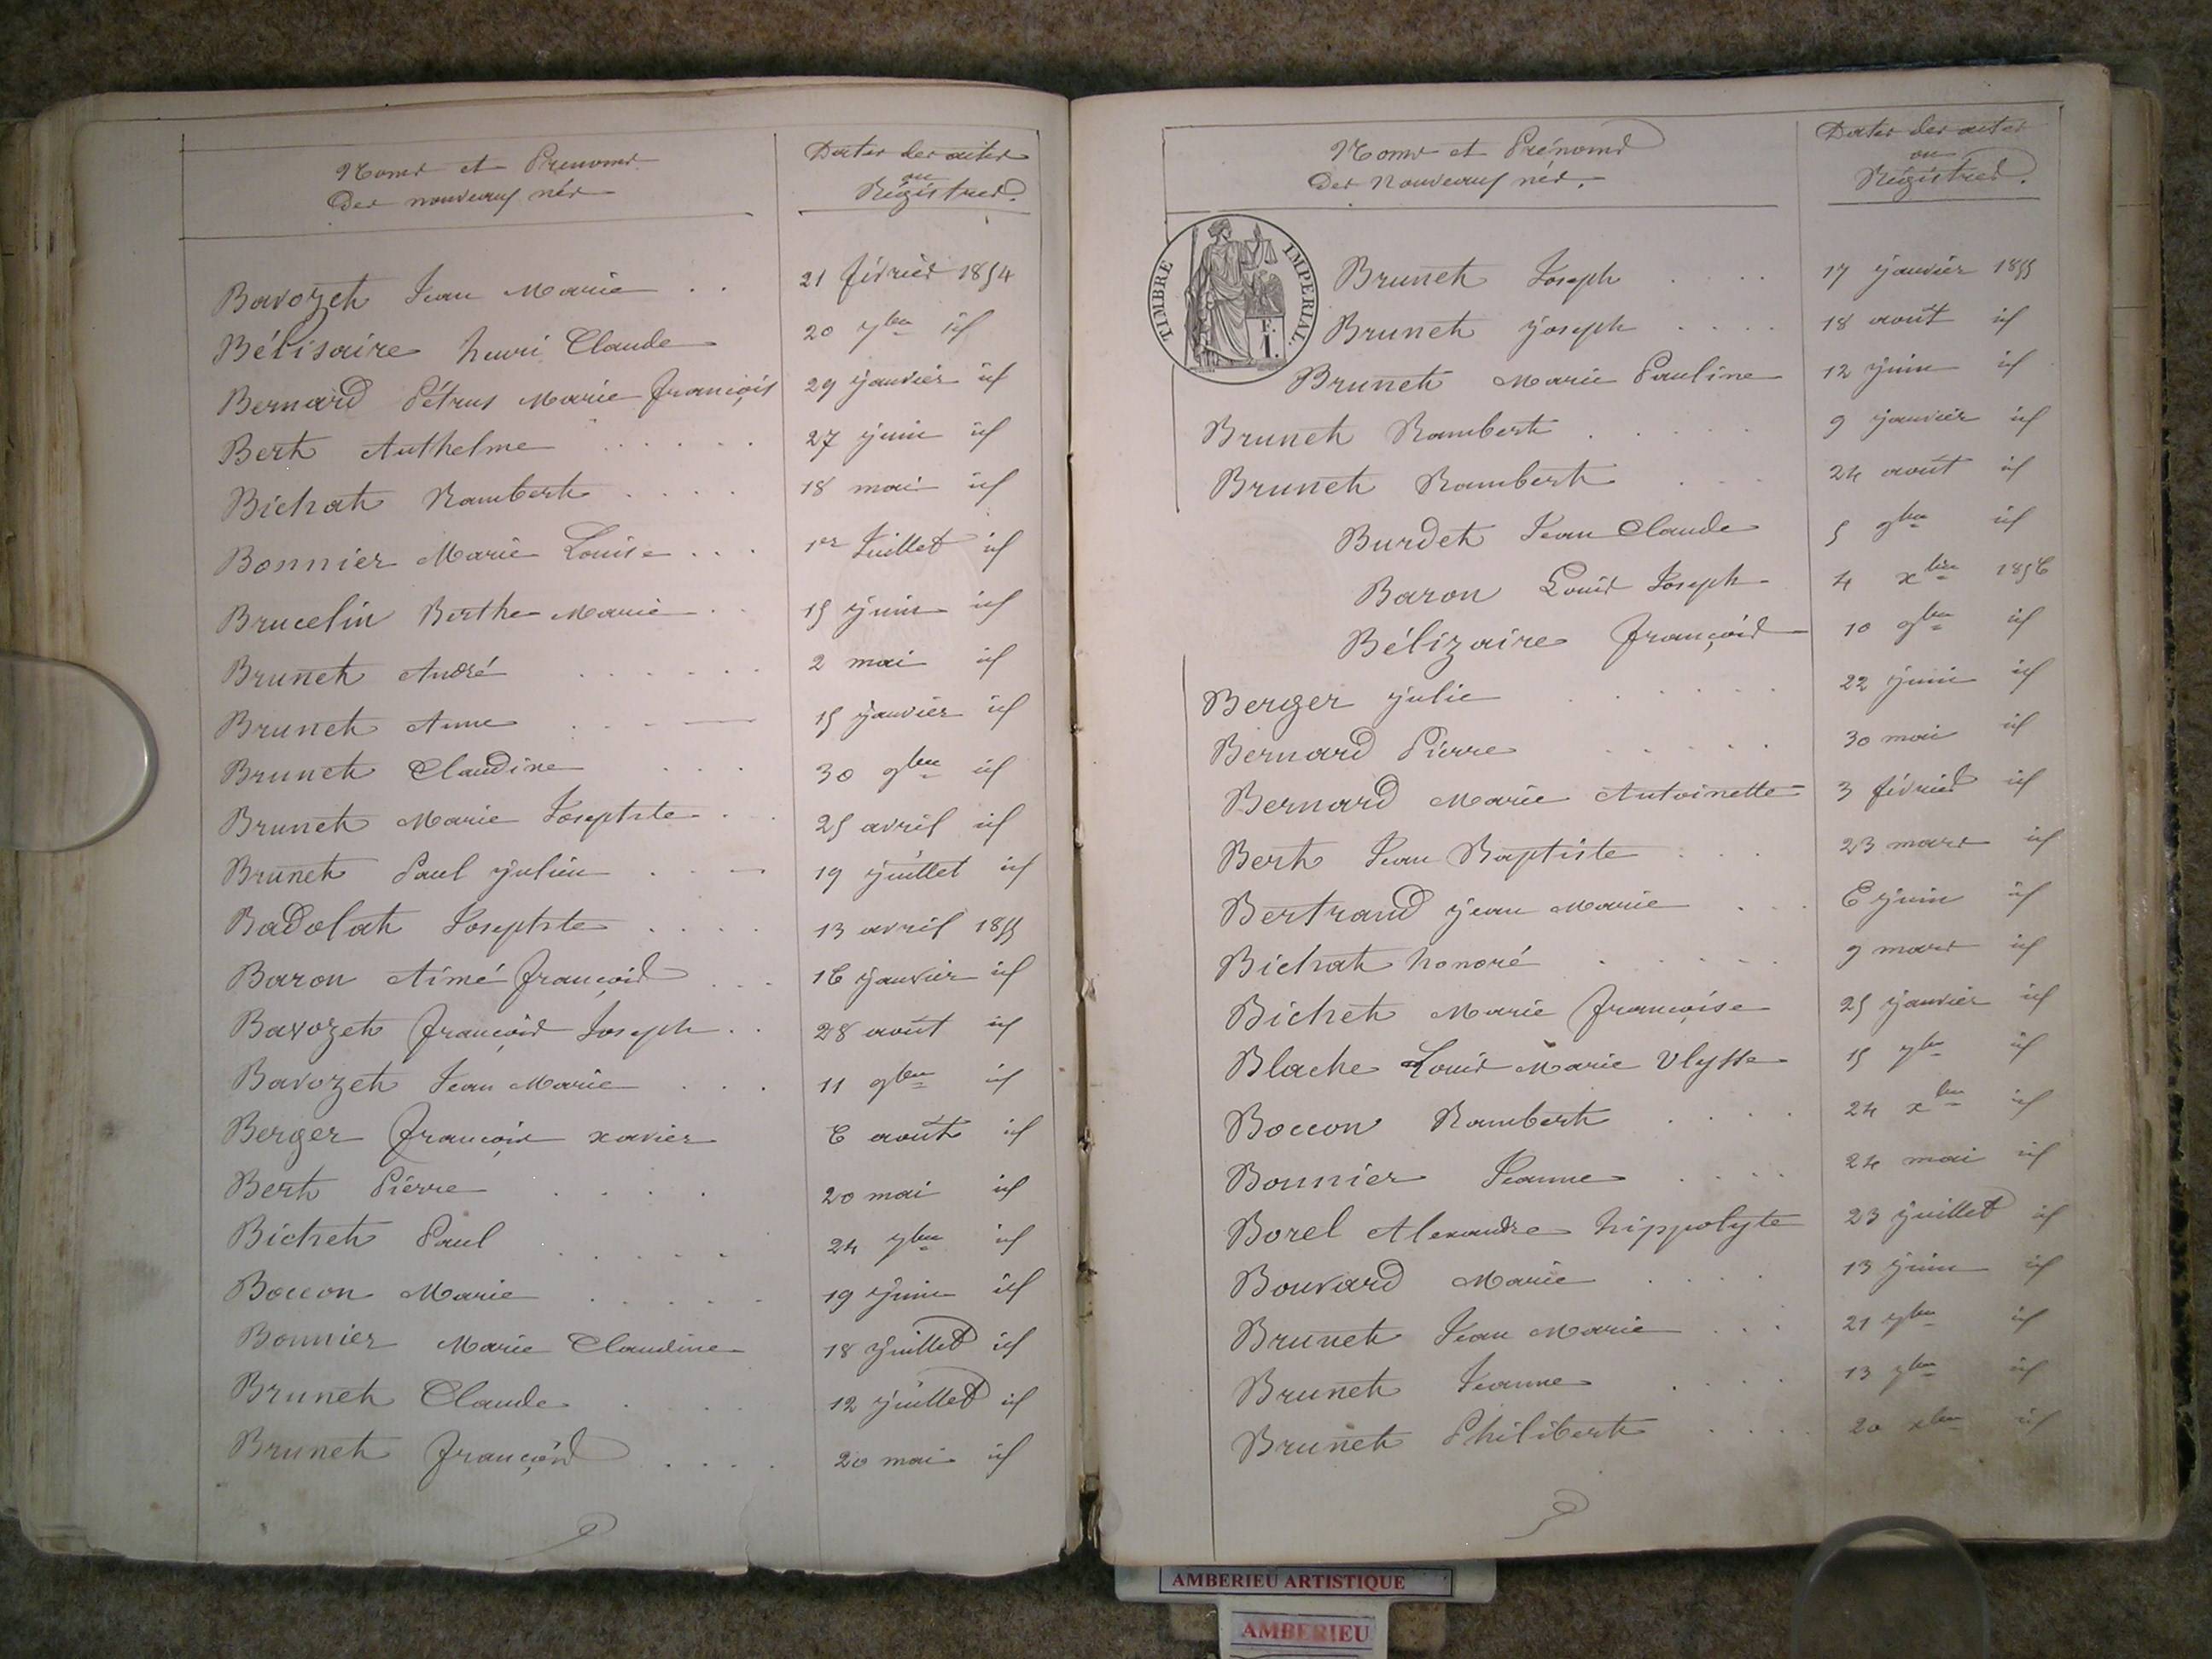 Noms et Prenoms
Des nouveaux nés
Dates des actes
ou
Régistres.
Bavozet Jean Marie . . 21 février 1854
Bélisaire henri Claude 20 7bre id
Bernard Pétrus Marie François 29 janvier id
Bert Anthelme . . . . . . 27 juin id
Bichat Rambert . . . . 18 mai id
Bonnier Marie Louise . . . 1er Juillet id
Brucelin Berthe Marie . . 15 juin id
Brunet André . . . . . 2 mai id
Brunet Anne . . . 15 janvier id
Brunet Claudine . . . 30 9bre id
Brunet Marie Josephte . . 25 avril id
Brunet Paul julien . . 19 juillet id
Badolat Josephte . . . . 13 avril 1855
Baron Aimé François . . . 16 janvier id
Bavozet François Joseph . . 28 août id
Bavozet Jean Marie . . . 11 9bre id
Berger François xavier 6 août id
Bert Pierre . . . . 20 mai id
Bichet Paul . . . . . 24 7bre id
Boccon Marie . . . . . 19 juin id
Bonnier Marie Claudine 18 juillet id
Brunet Claude . . . 12 juillet id
Brunet François . . . . 20 mai id
Noms et Prénoms
Des Nouveaux nés.
Dates des actes
ou
Régistres.
TIMBRE IMPERIAL.
E.
I.
Brunet Joseph . . . 17 janvier 1855
Brunet joseph . . . . 18 août id
Brunet Marie Pauline 12 juin id
Brunet Rambert . . . . . 9 janvier id
Brunet Rambert . . . 24 août id
Burdet Jean Claude 5 9bre id
Baron Louis Joseph 4 xbre 1856
Bélizaire François 10 9bre id
Berger julie . . . . . . 22 juin id
Bernard Pierre . . . . . 30 mai id
Bernard Marie Antoinette 3 février id
Bert Jean Baptiste . . . 23 mars id
Bertrand jean Marie . . . 6 juin id
Bichat honoré . . . . . 9 mars id
Bichet Marie Françoise 25 janvier id
Blache Louis Marie Ulysse 15 7bre id
Boccon Rambert . . . . 24 xbre id
Bonnier Jeanne . . . . 24 mai id
Borel Alexandre hippolyte 23 juillet id
Bouvard Marie . . . . 13 juin id
Brunet Jean Marie . . . 21 9bre id
Brunet Jeanne . . . . 13 7bre id
Brunet Philibert . . . . 20 xbre id
AMBERIEU ARTISTIQUE
AMBERIEU